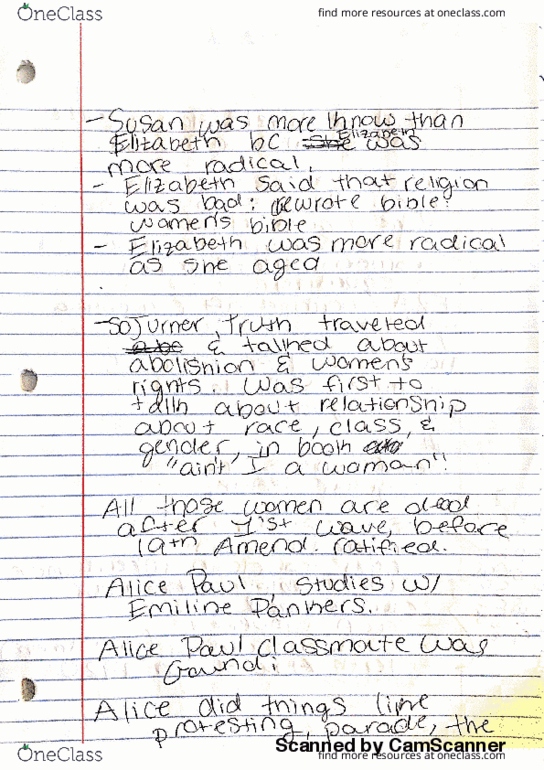 OneClass
find more resources at oneclass.com
- Susan was more know than
Elizabeth bc she Elizabeth was
more radical.
- Elizabeth said that religion
was bad: rewrote bible:
women's bible
- Elizabeth was more radical
as she aged
- Sojurner Truth traveled
& talked about
abolishnion & women's
rights. Was first to
talk about relationship
about race, class, &
gender, in book
"ain't I a woman".
All those women are dead
after 1'st wave, before
19th Amend. ratified.
Alice Paul studies w/
Emiline Pankers.
Alice Paul classmate was
Gandi
Alice did things like
protesting, parade, the
Scanned by CamScanner
OneClass
find more resources at oneclass.com